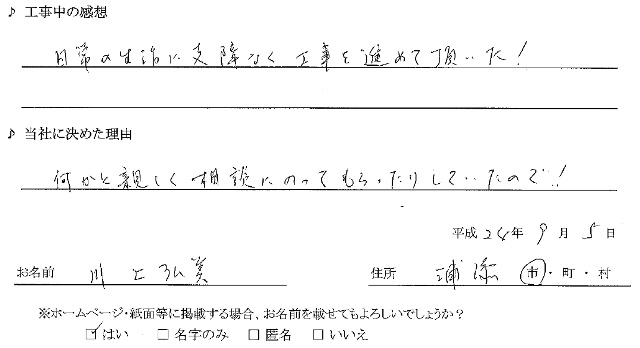 ♪ 工事中の感想
日常の生活に支障なく工事を進めて頂いた!
♪ 当社に決めた理由
何かと親しく相談にのってもらったりしていたので!!
平成24年9月5日
お名前 川上弘美 住所 浦添 市・町・村
※ホームページ・紙面等に掲載する場合、お名前を載せてもよろしいでしょうか?
☑はい □名字のみ □匿名 □いいえ